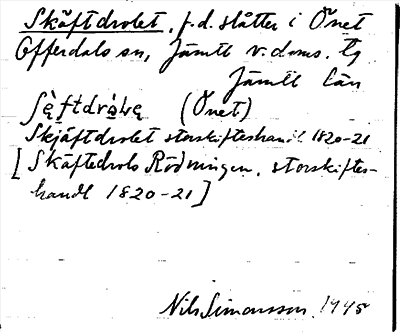 Skäftdrolet, f.d. slåtter i Önet
Offerdals sn, Jämtl v. doms. Tg
Jämtl län
(Önet)
Skjäftdrolet storskifteshandl 1820-21
[Skäftedrols Rödningen, storskiftes-
handl 1820-21]
Nils Simonsson. 1945